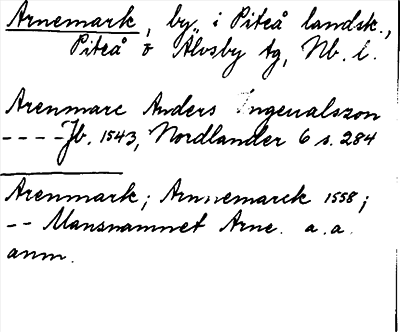 Arnemark, by i Piteå landsk.,
Piteå o Älvsby tg, Nb. l.
Arenmarc Anders Ingeualszon
---- Jb. 1543, Nordlander 6 s. 284
Arenmark; Arnnemarck 1558;
-- Mansnamnet Arne. a. a.
anm.